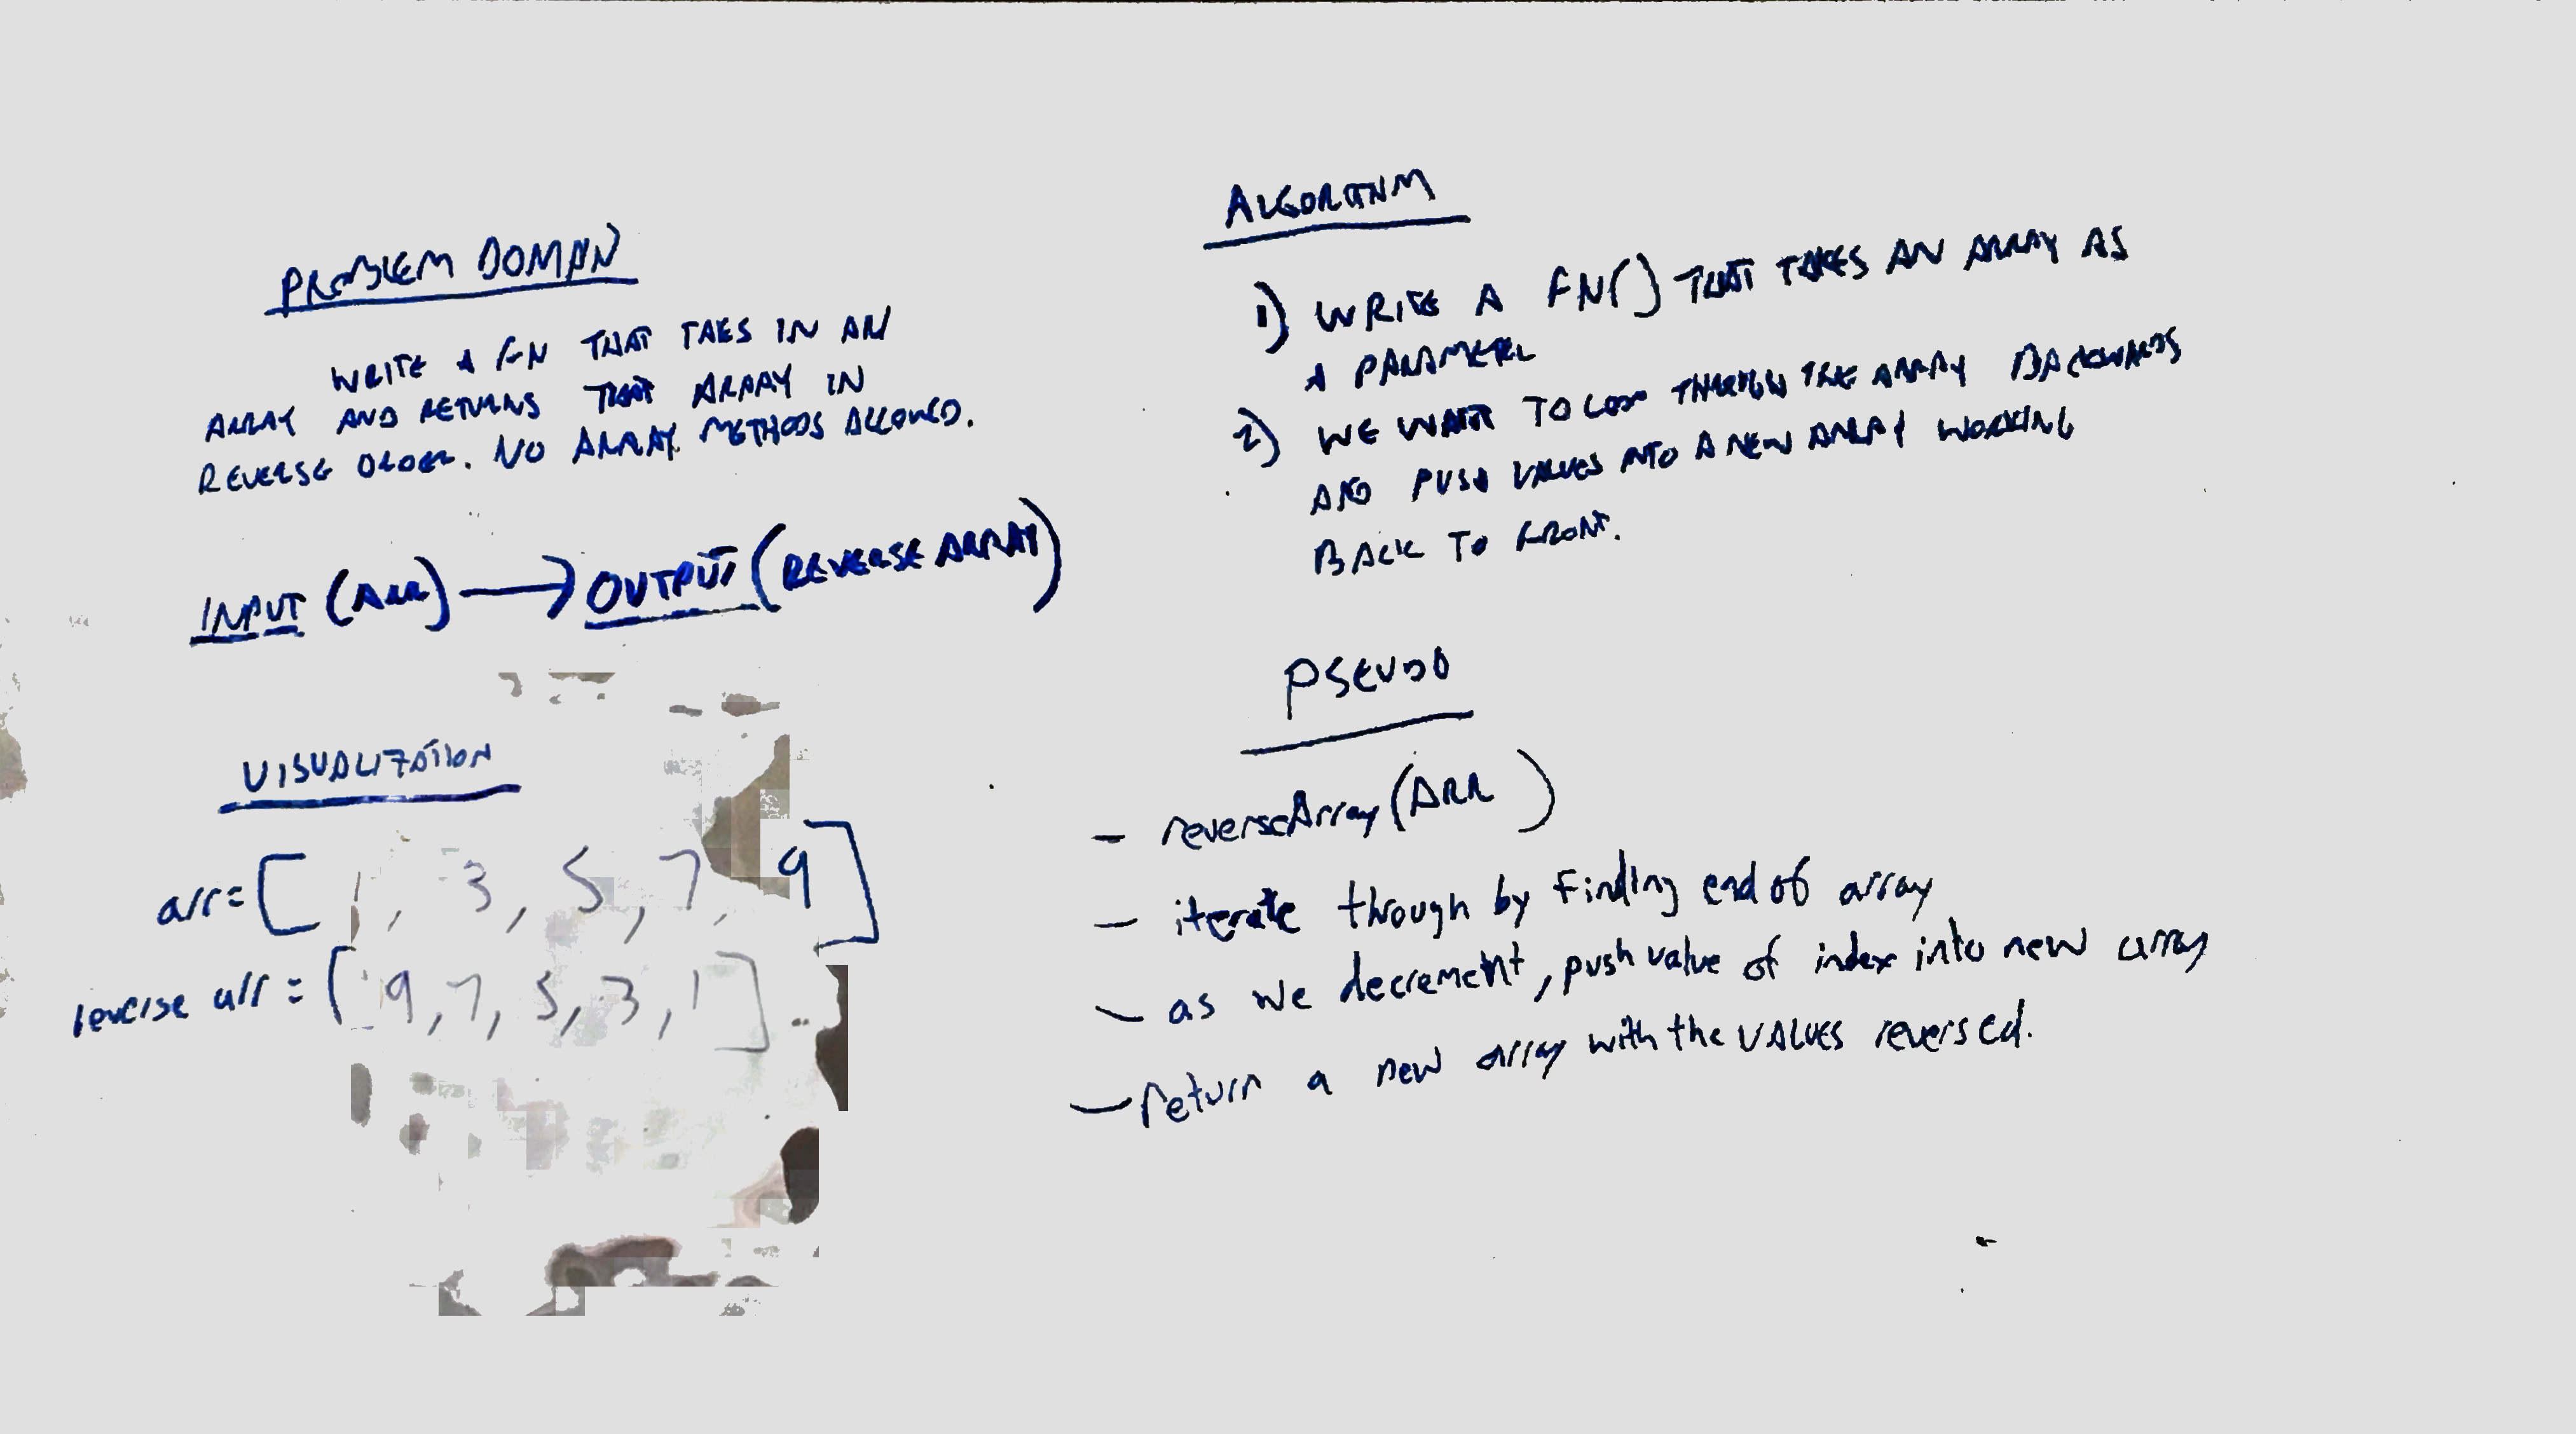 PROBLEM DOMAIN
WRITE A FN THAT TAKES IN AN
ARRAY AND RETURNS THAT ARRAY IN
REVERSE ORDER. NO ARRAY METHODS ALLOWED.
INPUT (ARR) → OUTPUT (REVERSE ARRAY)
VISUALIZATION
arr = [ 1, 3, 5, 7, 9 ]
reverse arr = [ 9, 7, 5, 3, 1 ]
ALGORITHM
1) WRITE A FN() THAT TAKES AN ARRAY AS
A PARAMETER
2) WE WANT TO LOOP THROUGH THE ARRAY BACKWARDS
AND PUSH VALUES INTO A NEW ARRAY WORKING
BACK TO FRONT.
PSEUDO
- reverseArray(ARR )
- iterate through by Finding end of array
- as we decrement, push value of index into new array
- return a new array with the VALUES reversed.